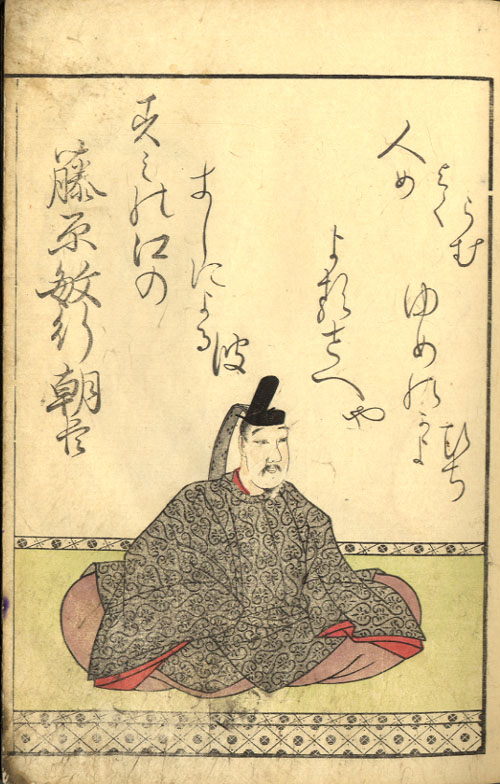 藤原敏行朝臣
すみの江の
きしによる波
よるさへや
ゆめのかよ
ひち
人め
よく
らむ